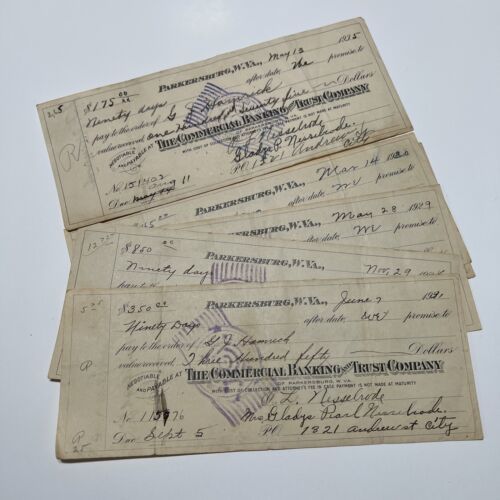 PARKERSBURG, W. VA., May 13 1935
$175 00/xx
Ninety days after date, We promise to
pay to the order of G J Hamrick
One Hundred Seventy five Dollars
value received
NEGOTIABLE AND PAYABLE AT THE COMMERCIAL BANKING AND TRUST COMPANY
OF PARKERSBURG, W. VA.
WITH COST OF COLLECTION AND ATTORNEY'S FEE IN CASE PAYMENT IS NOT MADE AT MATURITY
Nesselrode
No. 151402
Gladys P. Nesselrode
Due Aug 11
PO 1321 Andrew St
City
PARKERSBURG, W. VA., Mar 14 1930
We promise to
PARKERSBURG, W. VA., May 28 1929
We promise to
$800 00
PARKERSBURG, W. VA., Nov. 29
Ninety day
5.25
$350 00
PARKERSBURG, W. VA., June 7 1931
Ninety Days after date, We promise to
pay to the order of G J Hamrick
value received, Three Hundred fifty Dollars
NEGOTIABLE AND PAYABLE AT THE COMMERCIAL BANKING AND TRUST COMPANY
OF PARKERSBURG, W. VA.
WITH COST OF COLLECTION AND ATTORNEY'S FEE IN CASE PAYMENT IS NOT MADE AT MATURITY
L. Nesselrode
No. 115976
Mrs Gladys Pearl Nesselrode
Due Sept 5
P.O. 1321 Andrew st City